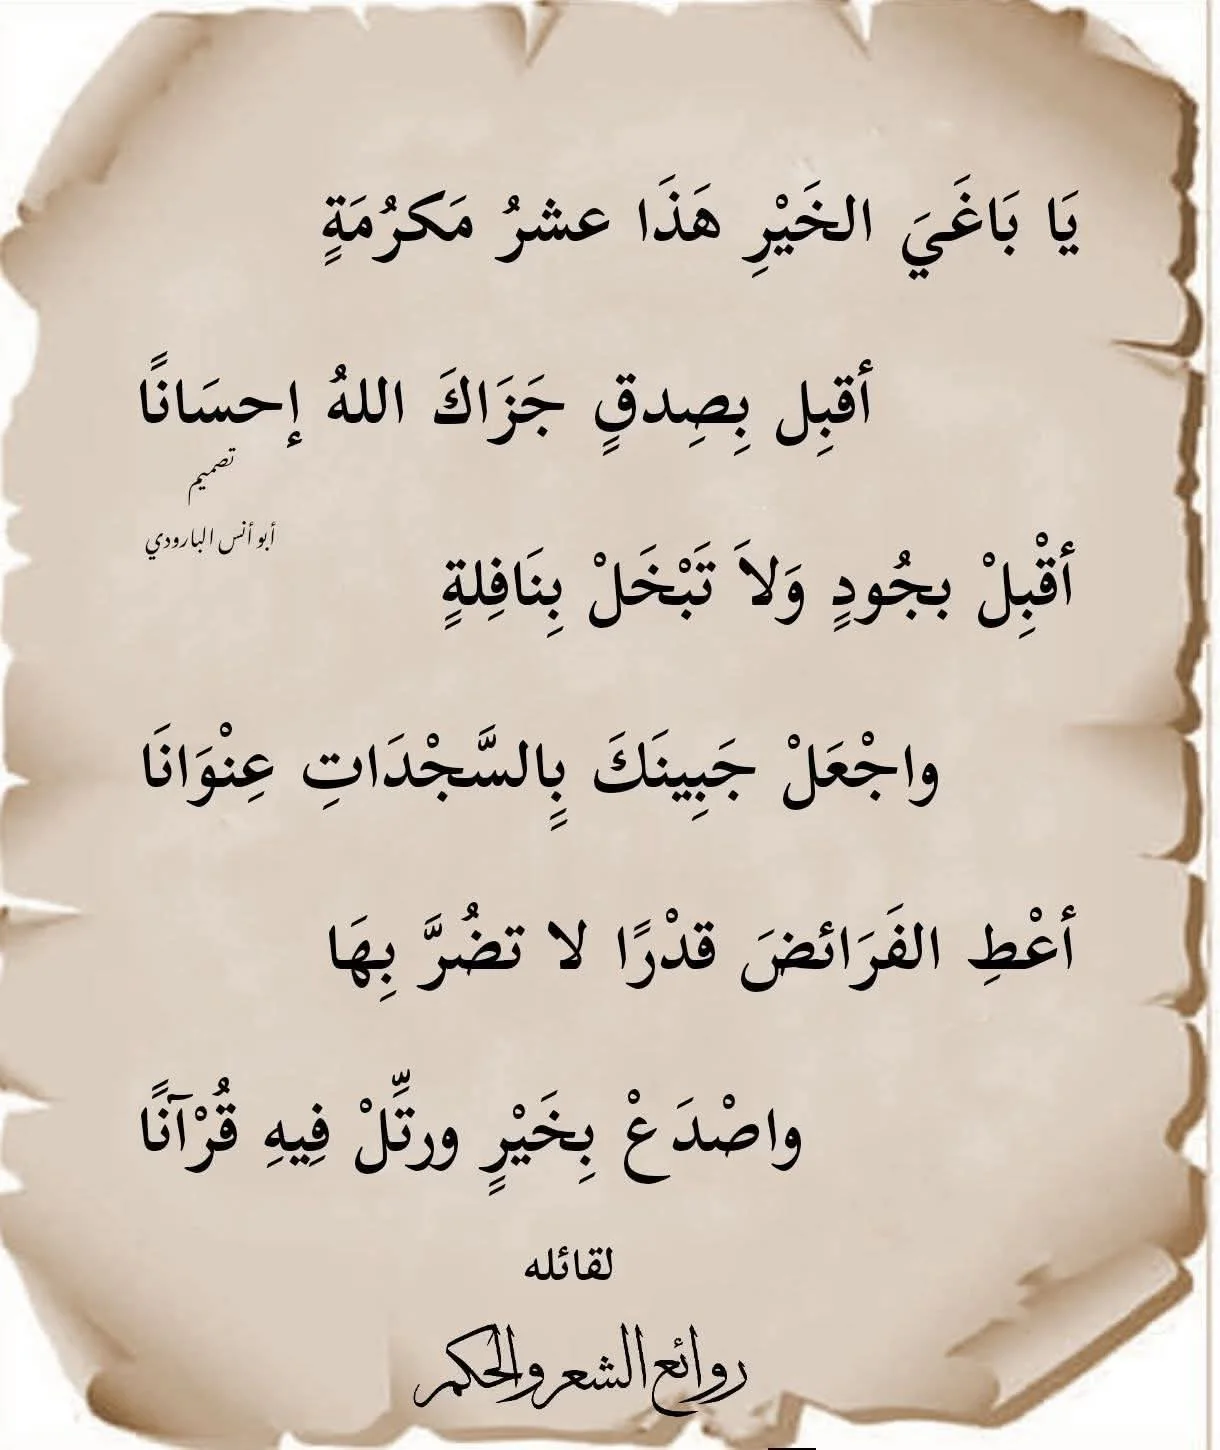 يَا بَاغَيَ الخَيْرِ هَذَا عشرُ مَكرُمَةٍ
أقبِل بِصِدقٍ جَزَاكَ اللهُ إحسَانًا
تصميم
أبو أنس البارودي
أقْبِلْ بجُودٍ وَلاَ تَبْخَلْ بِنَافِلةٍ
واجْعَلْ جَبِينَكَ بِالسَّجْدَاتِ عِنْوَانَا
أعْطِ الفَرَائضَ قدْرًا لا تضُرَّ بِهَا
واصْدَعْ بِخَيْرٍ ورتِّلْ فِيهِ قُرْآنًا
لقائله
روائع الشعر والحكم